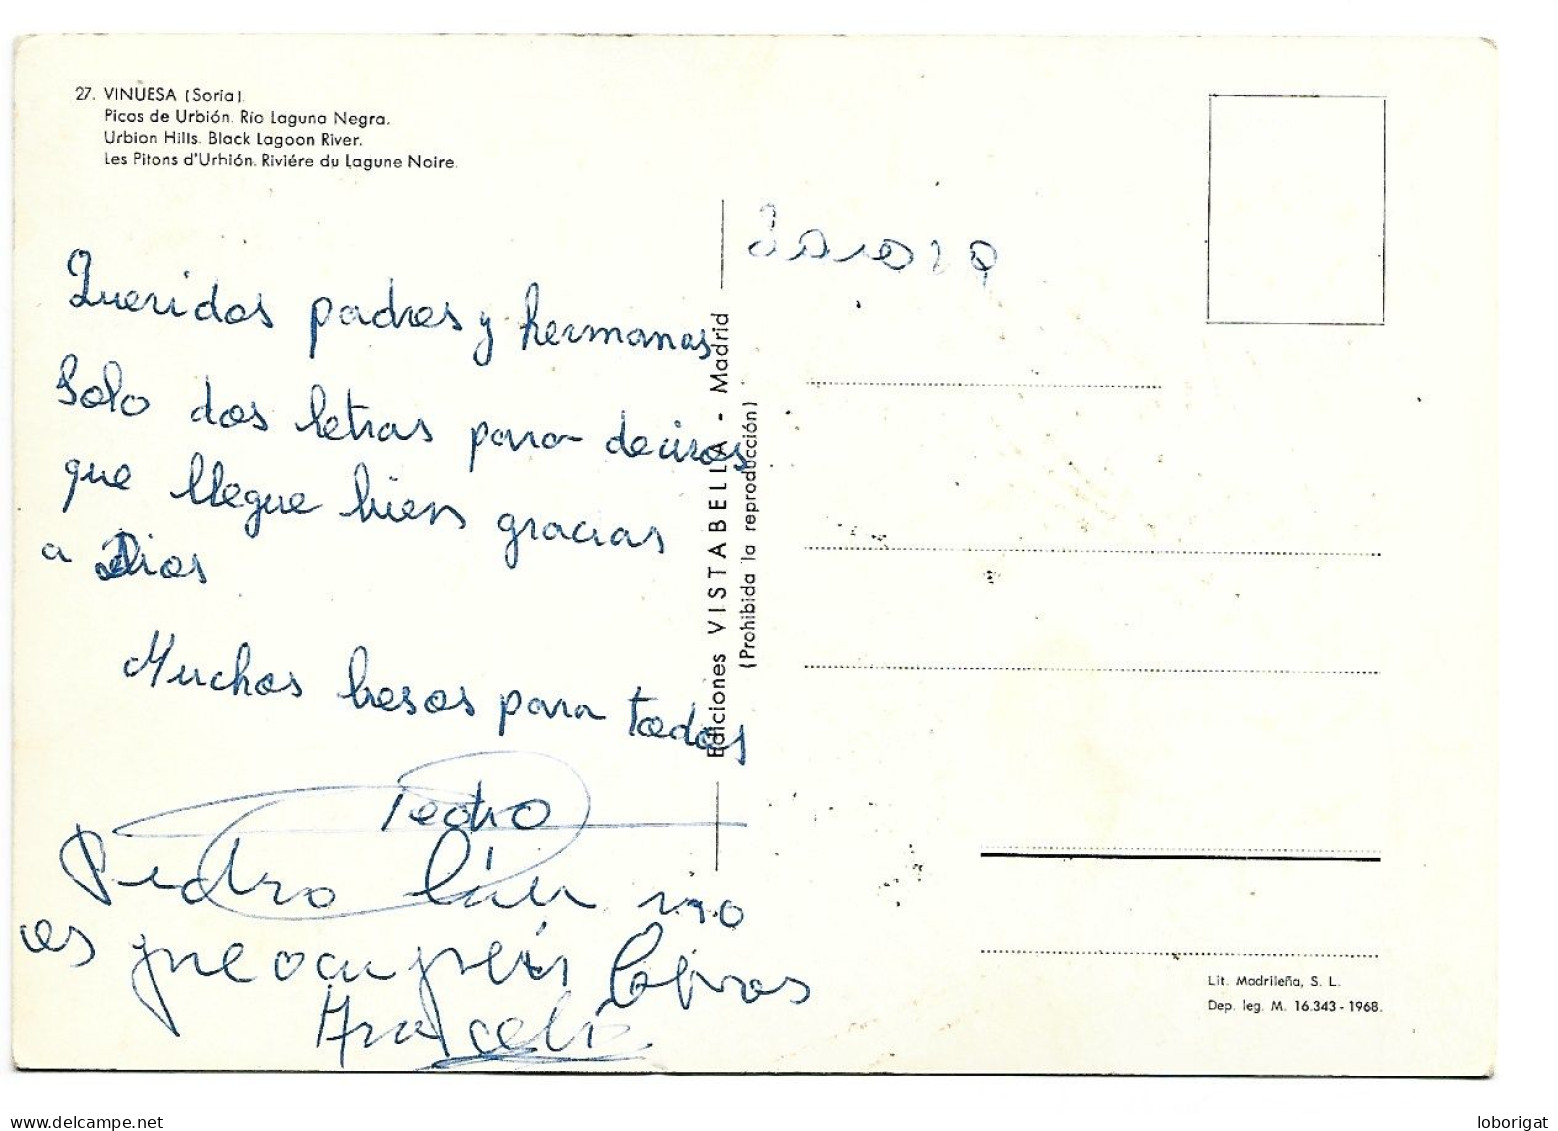 27. VINUESA (Soria).
Picos de Urbión. Río Laguna Negra.
Urbion Hills. Black Lagoon River.
Les Pitons d'Urhión. Riviére du Lagune Noire.
Queridos padres y hermanas
Solo dos letras para deciros
que llegue bien gracias
a Dios
Muchos besos para todos
Pedro
Pedro no
os
Araceli
Ediciones VISTABELLA - Madrid
(Prohibida la reproducción)
Lit. Madrileña, S. L.
Dep. leg. M. 16.343 - 1968.
www.delcampe.net
loborigat